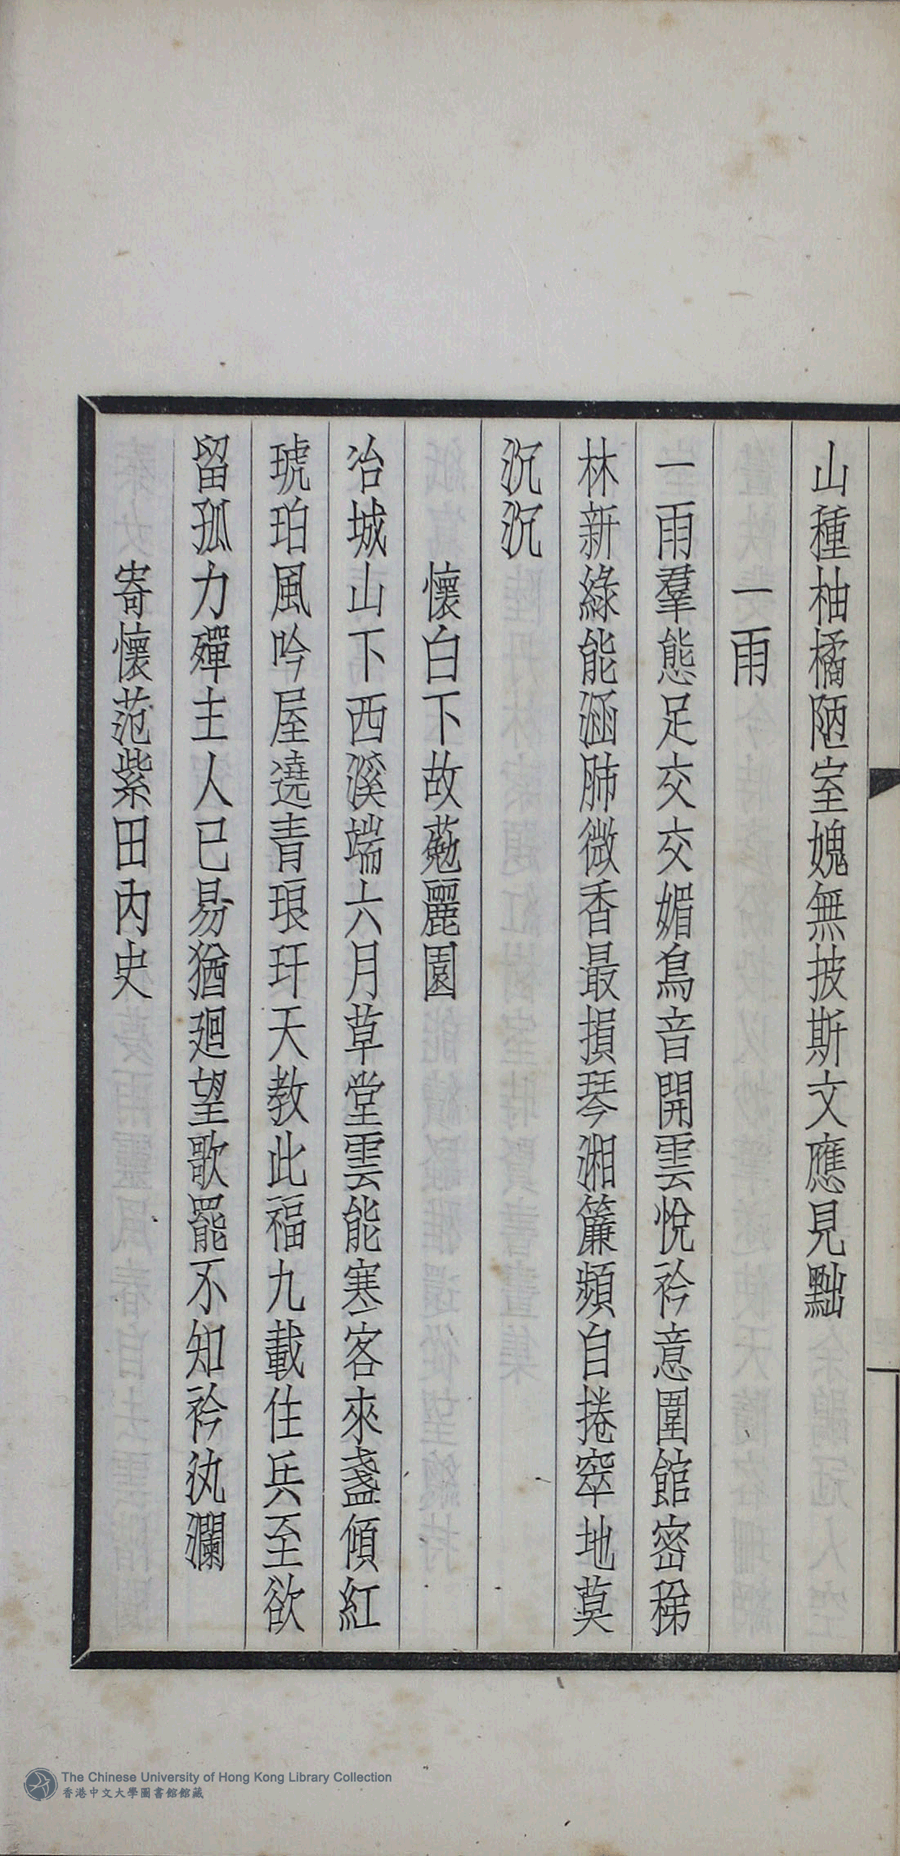 山種柚橘陋室媿無披斯文應見黜
一雨
一雨羣態足交交媚鳥音開雲悅衿意圍館密稊
林新綠能涵肺微香最損琴湘簾頻自捲窣地莫
沉沉
懷白下故蒐麗園
冶城山下西溪端六月草堂雲能寒客來盞傾紅
琥珀風吟屋遶青琅玕天教此福九載住兵至欲
留孤力殫主人已易猶廻望歌罷不知衿汍瀾
寄懷范紫田內史
The Chinese University of Hong Kong Library Collection
香港中文大學圖書館館藏